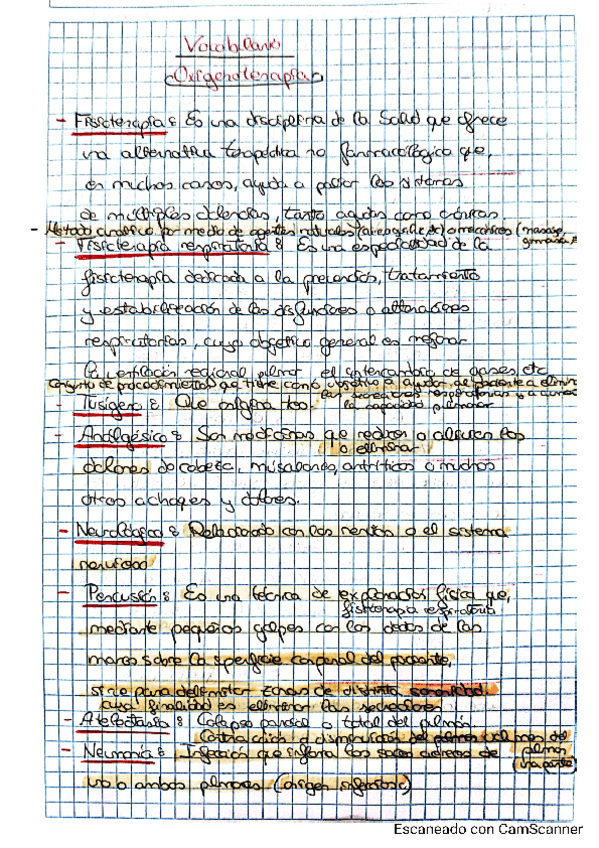 Vocabulario
Oxigenoterapia
- Fisioterapia: Es una disciplina de la Salud que ofrece
una alternativa terapéutica no farmacológica que,
en muchos casos, ayuda a paliar los síntomas
de múltiples dolencias, tanto agudas como crónicas.
- Método curativo por medio de agentes naturales (aire, agua, luz, etc) o mecánicos (masaje, gimnasia,
- Fisioterapia respiratoria: Es una especialidad de la
fisioterapia dedicada a la prevención, tratamiento
y estabilización de las disfunciones o alteraciones
respiratorias, cuyo objetivo general es mejorar
la ventilación regional pulmonar el intercambio de gases, etc
Conjunto de procedimientos que tiene como objetivo el ayudar al paciente a eliminar
las secreciones respiratorias y a
- Tusígeno: Que origina tos. la capacidad pulmonar
- Analgésico: Son medicinas que reducen o alivian los
o eliminar
dolores de cabeza, musculares, artríticos o muchos
otros achaques y dolores.
- Neurológico: Relacionado con los nervios o el sistema
nervioso
- Percusión: Es una técnica de exploración física que,
fisioterapia respiratoria
mediante pequeños golpes con los dedos de las
manos sobre la superficie corporal del paciente,
sirve para delimitar zonas de distinta sonoridad.
cuya finalidad es eliminar las secreciones
- Atelectasia: Colapso parcial o total del pulmón.
Contracción o disminución del volumen del
- Neumonía: Infección que inflama los sacos aéreos de pulmón
uno o ambos pulmones (origen infeccioso) (una parte)
Escaneado con CamScanner